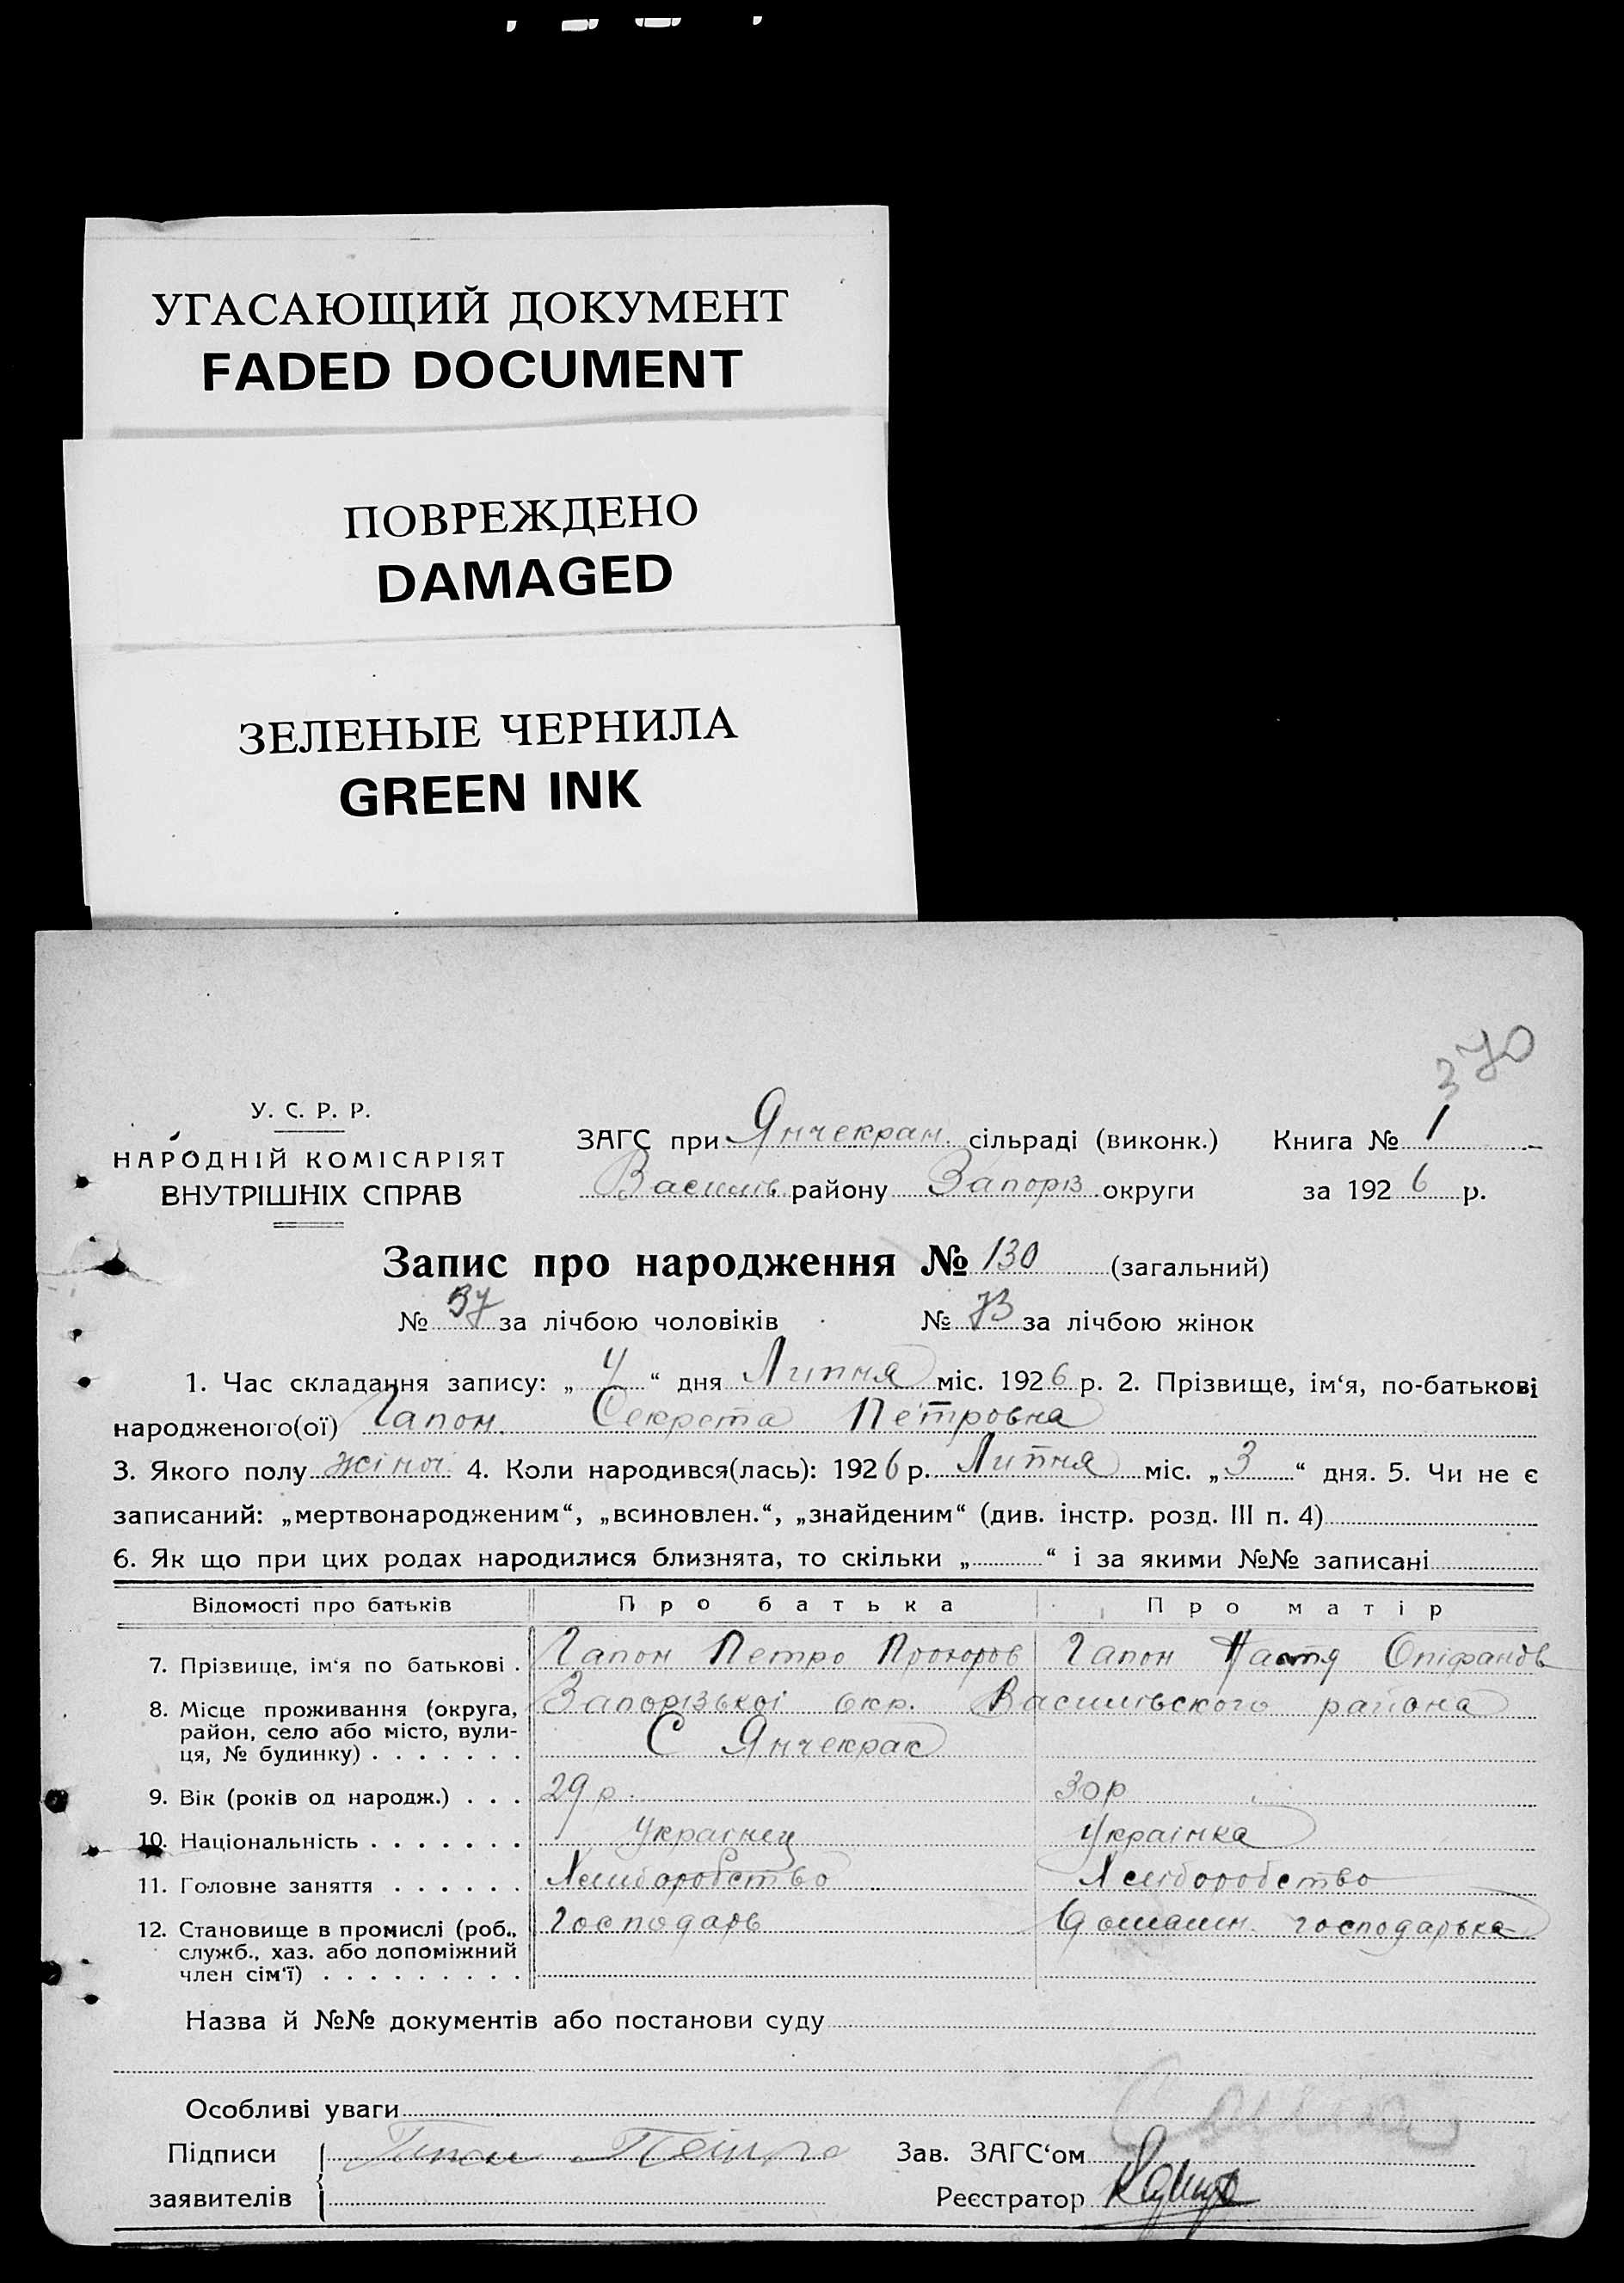 УГАСАЮЩИЙ ДОКУМЕНТ
FADED DOCUMENT
ПОВРЕЖДЕНО
DAMAGED
ЗЕЛЕНЫЕ ЧЕРНИЛА
GREEN INK
370
У. С. Р. Р.
НАРОДНІЙ КОМІСАРІЯТ
ВНУТРІШНІХ СПРАВ
ЗАГС при Янчекран. сільраді (виконк.) Книга № 1
Василів району Запоріз округи за 1926 р.
Запис про народження № 130 (загальний)
№ 57 за лічбою чоловіків № 73 за лічбою жінок
1. Час складання запису: „ 4 “ дня Липня міс. 1926 р. 2. Прізвище, ім‘я, по-батькові
народженого(ої) Гапон Секрета Петровна
3. Якого полу жіноч. 4. Коли народився(лась): 1926 р. Липня міс. „ 3 “ дня. 5. Чи не є
записаний: „мертвонародженим“, „всиновлен.“, „знайденим“ (див. інстр. розд. III п. 4)
6. Як що при цих родах народилися близнята, то скільки „ “ і за якими №№ записані
Відомості про батьків Про батька Про матір
7. Прізвище, ім‘я по батькові . Гапон Петро Прохоров Гапон Настя Опіфанов
8. Місце проживання (округа, Запорізької окр. Василівського района
район, село або місто, вули- С Янчекрак
ця, № будинку) . . . . . . .
9. Вік (років од народж.) . . . 29 р. 30 р
10. Національність . . . . . . . Украінец Украінка
11. Головне заняття . . . . . . Хлиборобство Хліборобство
12. Становище в промислі (роб., господарь домашн. господарька
служб., хаз. або допоміжний
член сім‘ї) . . . . . . . . .
Назва й №№ документів або постанови суду
Особливі уваги
Підписи Гапон Петро Зав. ЗАГС‘ом
заявителів Реєстратор